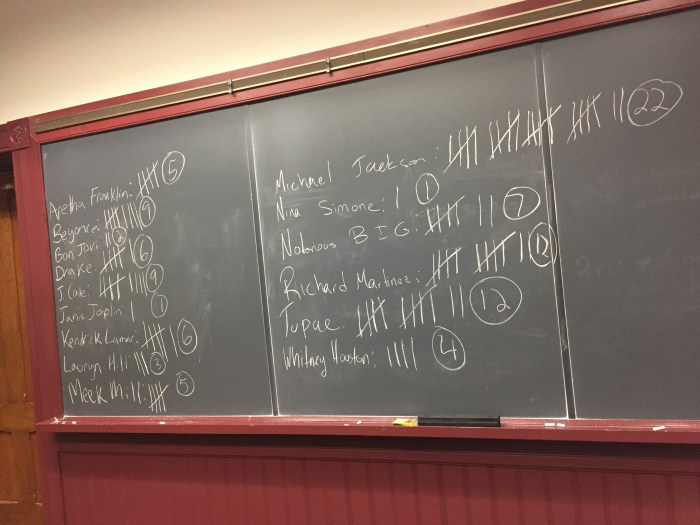 Aretha Franklin: 5
Beyonce: 9
Bon Jovi
Drake: 6
J Cole: 9
Joplin: 1
Kendrick Lamar: 6
Lauryn Hill: 3
Meek Mill: 5
Michael Jackson: 22
Nina Simone: 1
Notorious B I G: 7
Richard Martinez:
Tupac: 12
Whitney Houston: 4